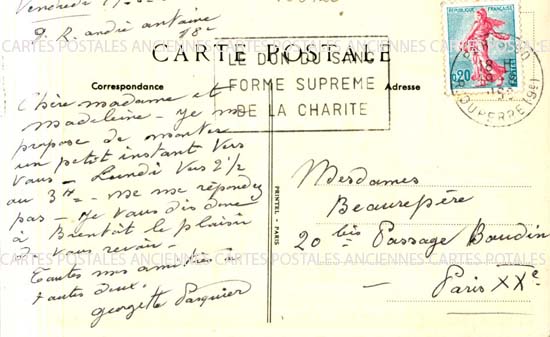 Vendredi
9. R. andré antoine
18e
CARTE POSTALE
Correspondance
Adresse
LE DON DU SANG
FORME SUPREME
DE LA CHARITE
REPUBLIQUE FRANÇAISE
0,20
POSTES
Chère madame et
Madeleine - Je me
propose de monter
un petit instant vers
vous - Lundi vers 2 1/2
ou 3 H - Ne me répondez
pas - Je vous dis donc
à Bientôt le plaisir
de vous revoir -
Toutes mes amitiés à
toutes deux.
georgette Pasquier
PRINTEL - PARIS
Mesdames
Beaurepère
20 bis Passage Boudin
Paris XXe
CARTES POSTALES ANCIENNES